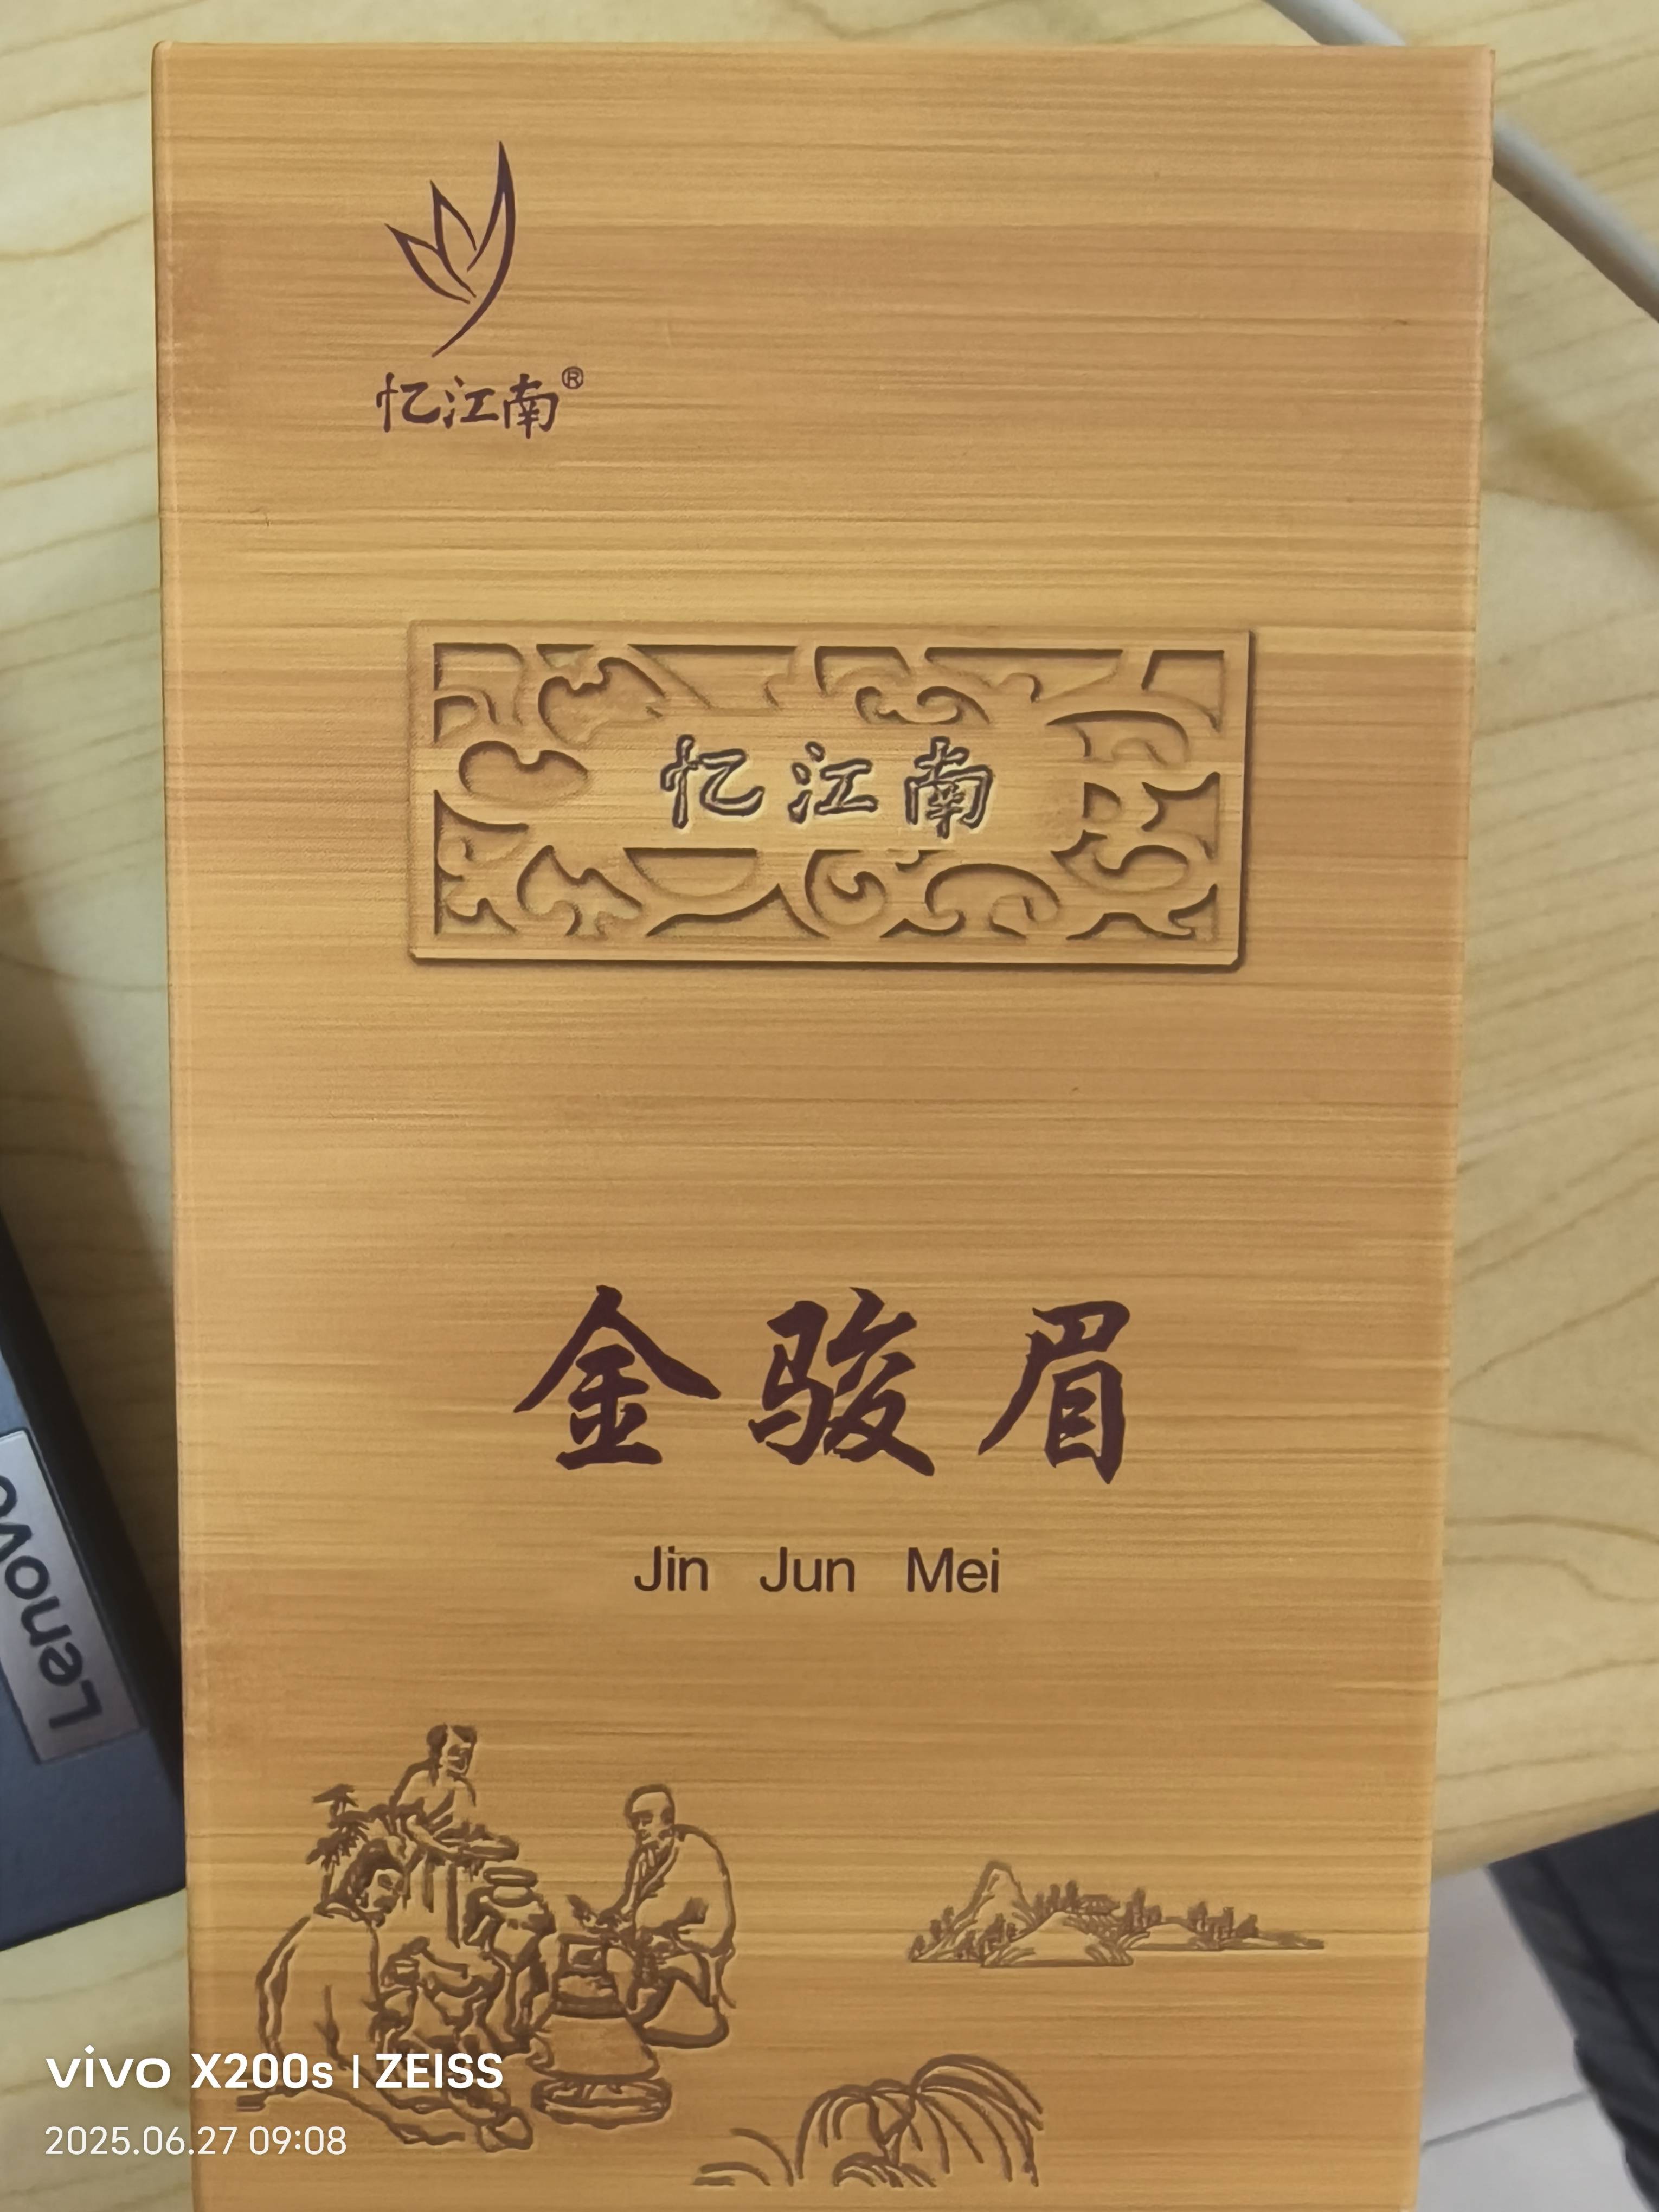 忆江南®
忆江南
金骏眉
Jin Jun Mei
Lenovo
vivo X200s | ZEISS
2025.06.27 09:08